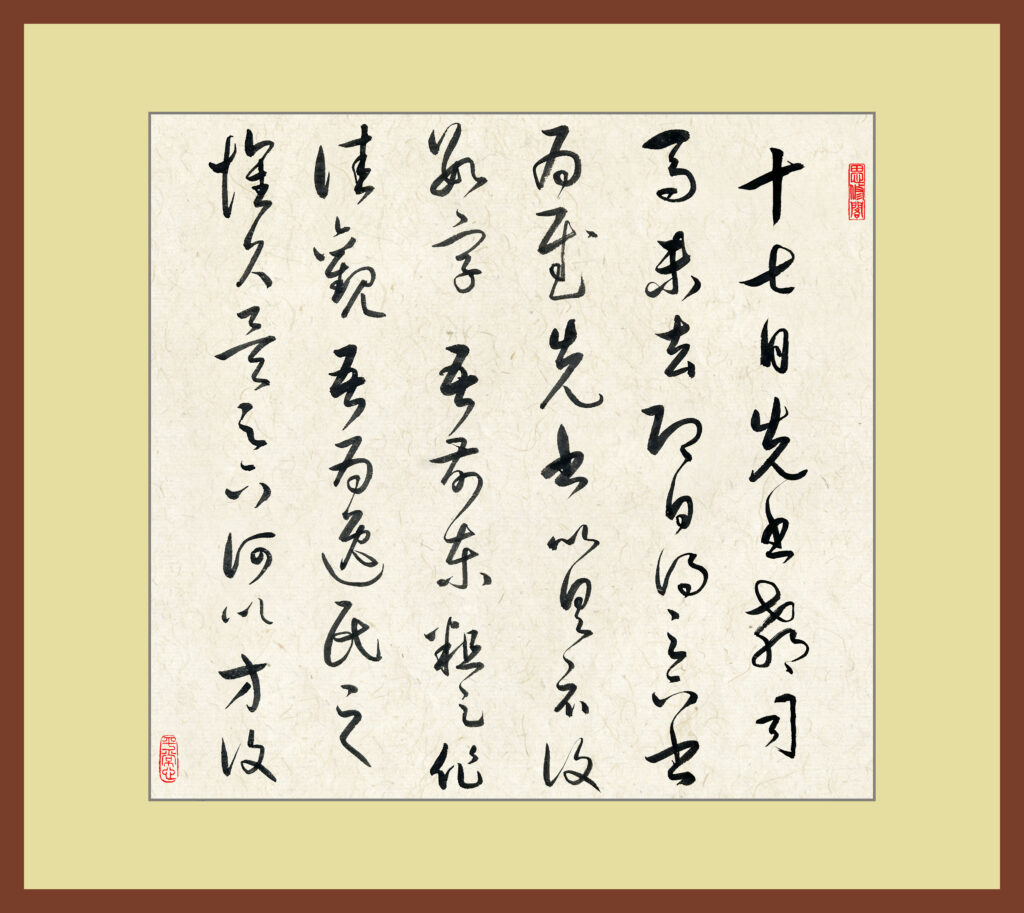 思修閣
十七日先書郗司
馬未去即日得足下書
為慰先書以具示復
數字吾前東粗足作
佳觀吾為逸民之
懷久矣足下何以方復